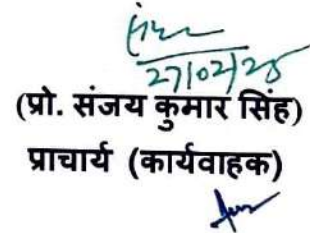 27/02/25
(प्रो. संजय कुमार सिंह)
प्राचार्य (कार्यवाहक)